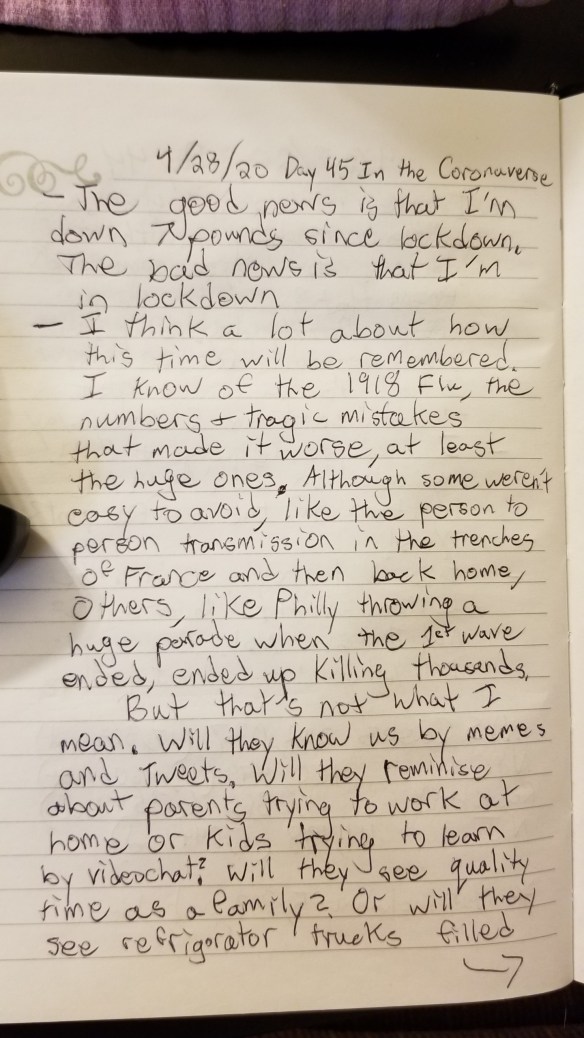 4/28/20 Day 45 In the Coronaverse
- The good news is that I'm
down 7 pounds since lockdown.
The bad news is that I'm
in lockdown
- I think a lot about how
this time will be remembered.
I know of the 1918 Flu, the
numbers + tragic mistakes
that made it worse, at least
the huge ones. Although some weren't
easy to avoid, like the person to
person transmission in the trenches
of France and then back home,
Others, like Philly throwing a
huge parade when the 1st wave
ended, ended up killing thousands.
But that's not what I
mean. Will they know us by memes
and Tweets. Will they reminise
about parents trying to work at
home or kids trying to learn
by videochat? Will they see quality
time as a family? Or will they
see refrigorator trucks filled